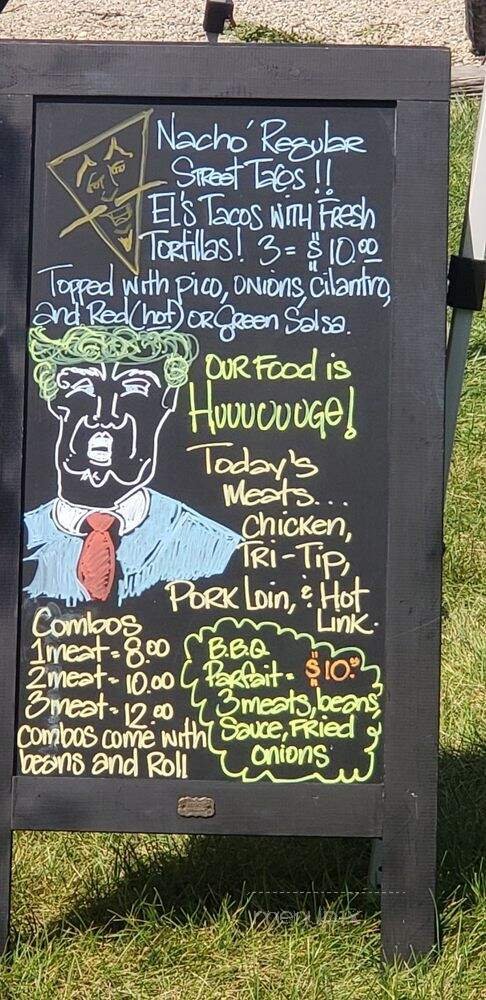 Nacho' Regular
Street Tacos !!
El's Tacos with Fresh
Tortillas! 3 = $10.00
Topped with pico, onions, cilantro,
and Red (hot) or Green Salsa.
Our Food is
Huuuuuuge!
Today's
Meats...
Chicken,
Tri-Tip,
Pork Loin, & Hot
Link.
Combos
1 meat - 8.00
2 meat - 10.00
3 meat - 12.00
combos come with
beans and Roll
B.B.Q
Parfait - $10.00
3 meats, beans,
Sauce, Fried
onions